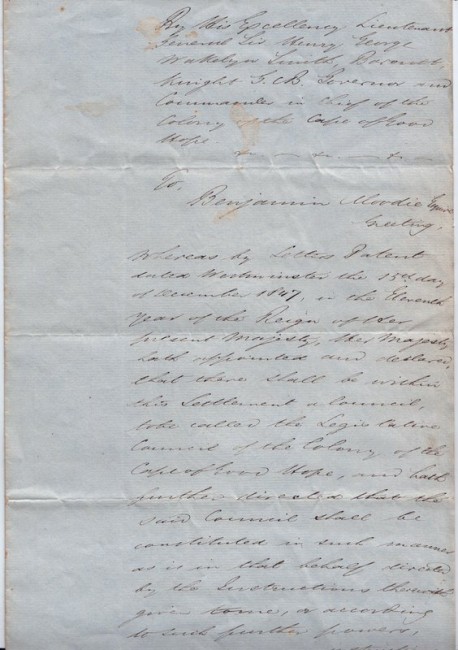 By His Excellency Lieutenant
General Sir Henry George
Wakelyn Smith, Baronet
Knight G.C.B. Governor and
Commander in Chief of the
Colony of the Cape of Good
Hope.
To,
Benjamin Moodie Esquire
Greeting,
Whereas by Letters Patent
dated Westminster the 15th day
of December 1847, in the Eleventh
Year of the Reign of Her
present Majesty, Her Majesty
hath appointed and declared,
that there shall be within
this Settlement a Council,
to be called the Legislative
Council of the Colony of the
Cape of Good Hope, and hath
further directed that the
said Council shall be
constituted in such manner
as is in that behalf directed
by the Instructions therewith
given to me, or according
to such further powers,